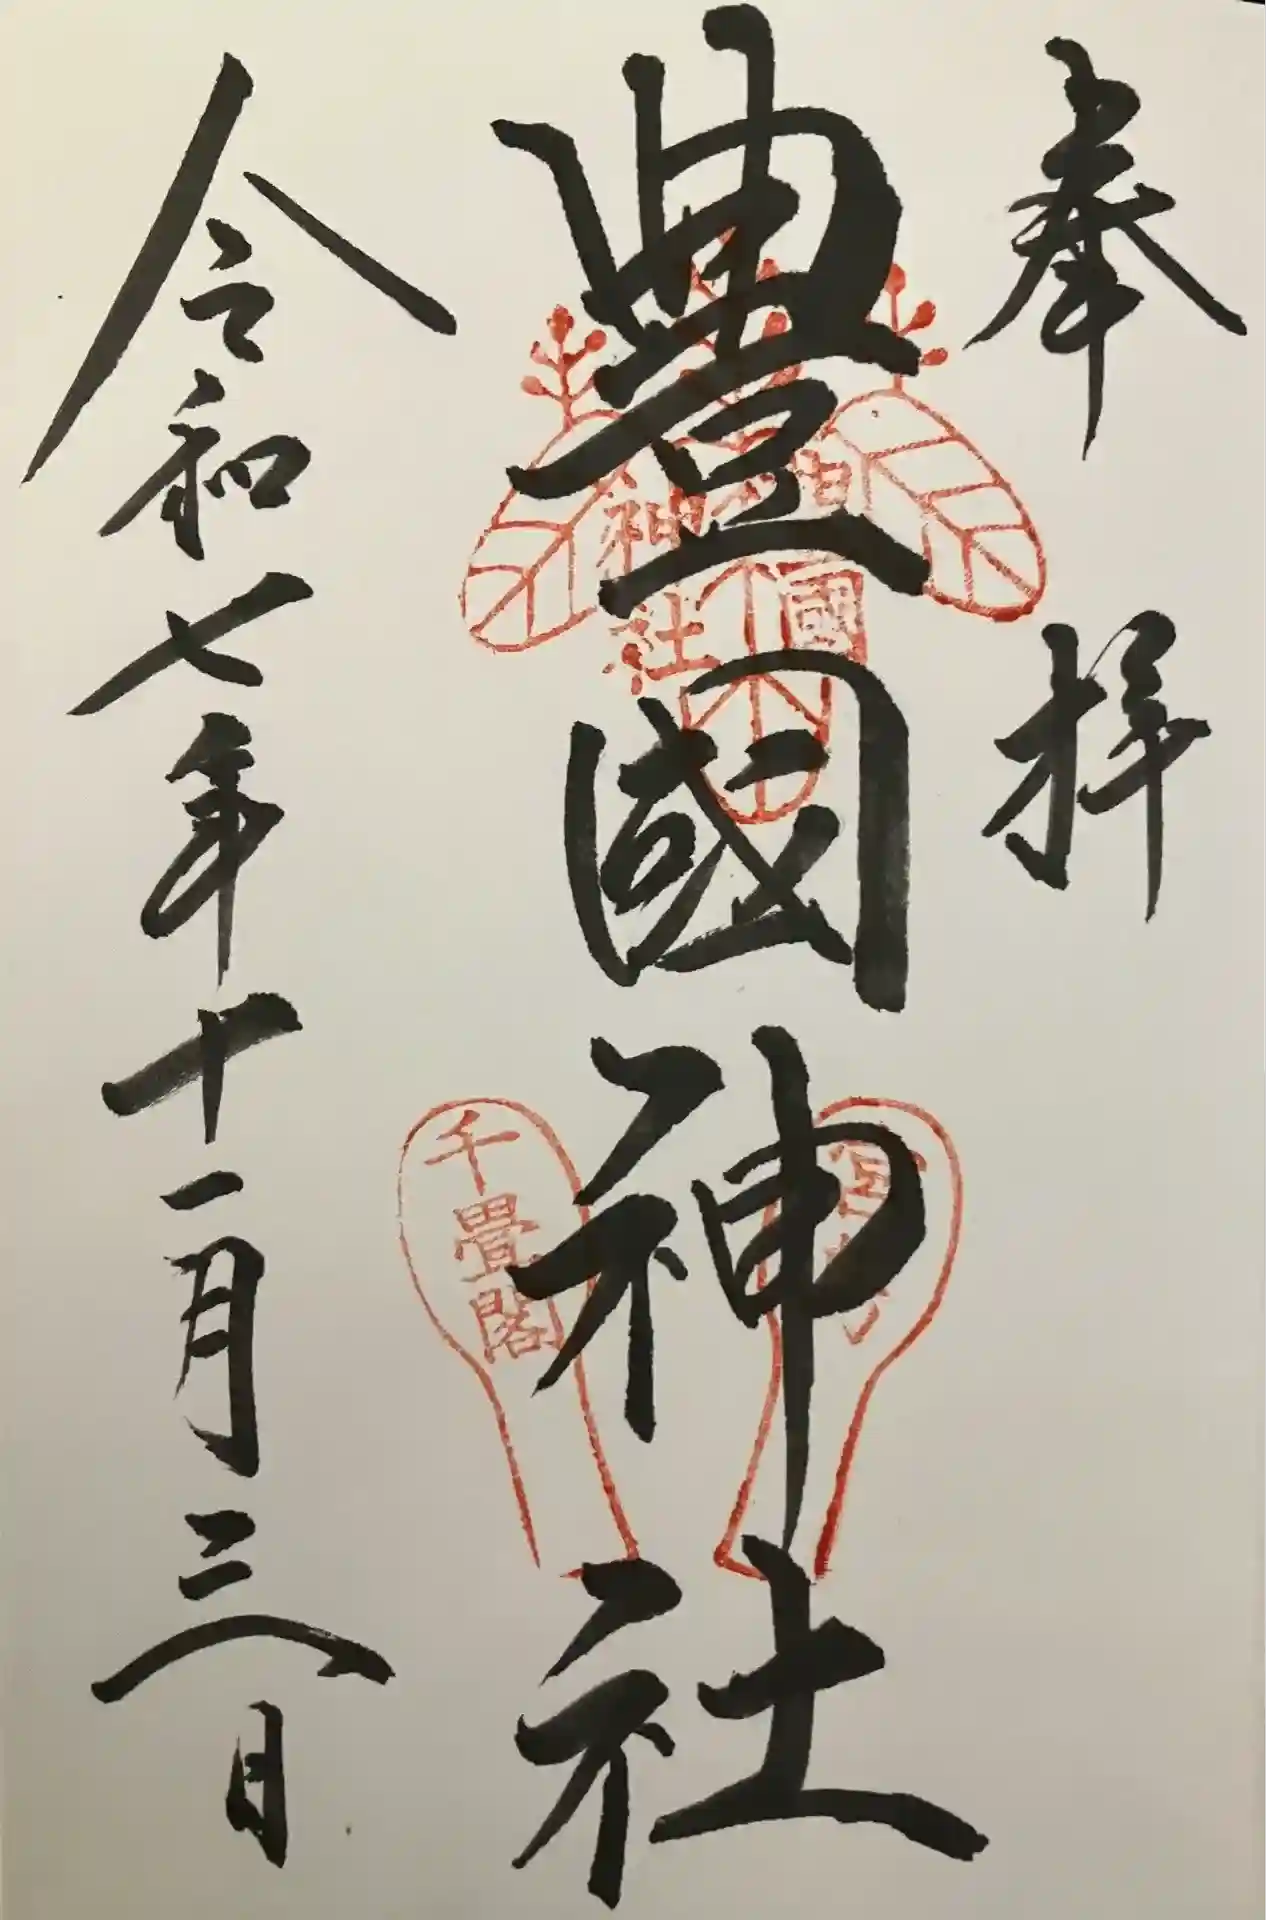 奉拝
豊國神社
令和七年十一月三日
神社
國
千畳閣